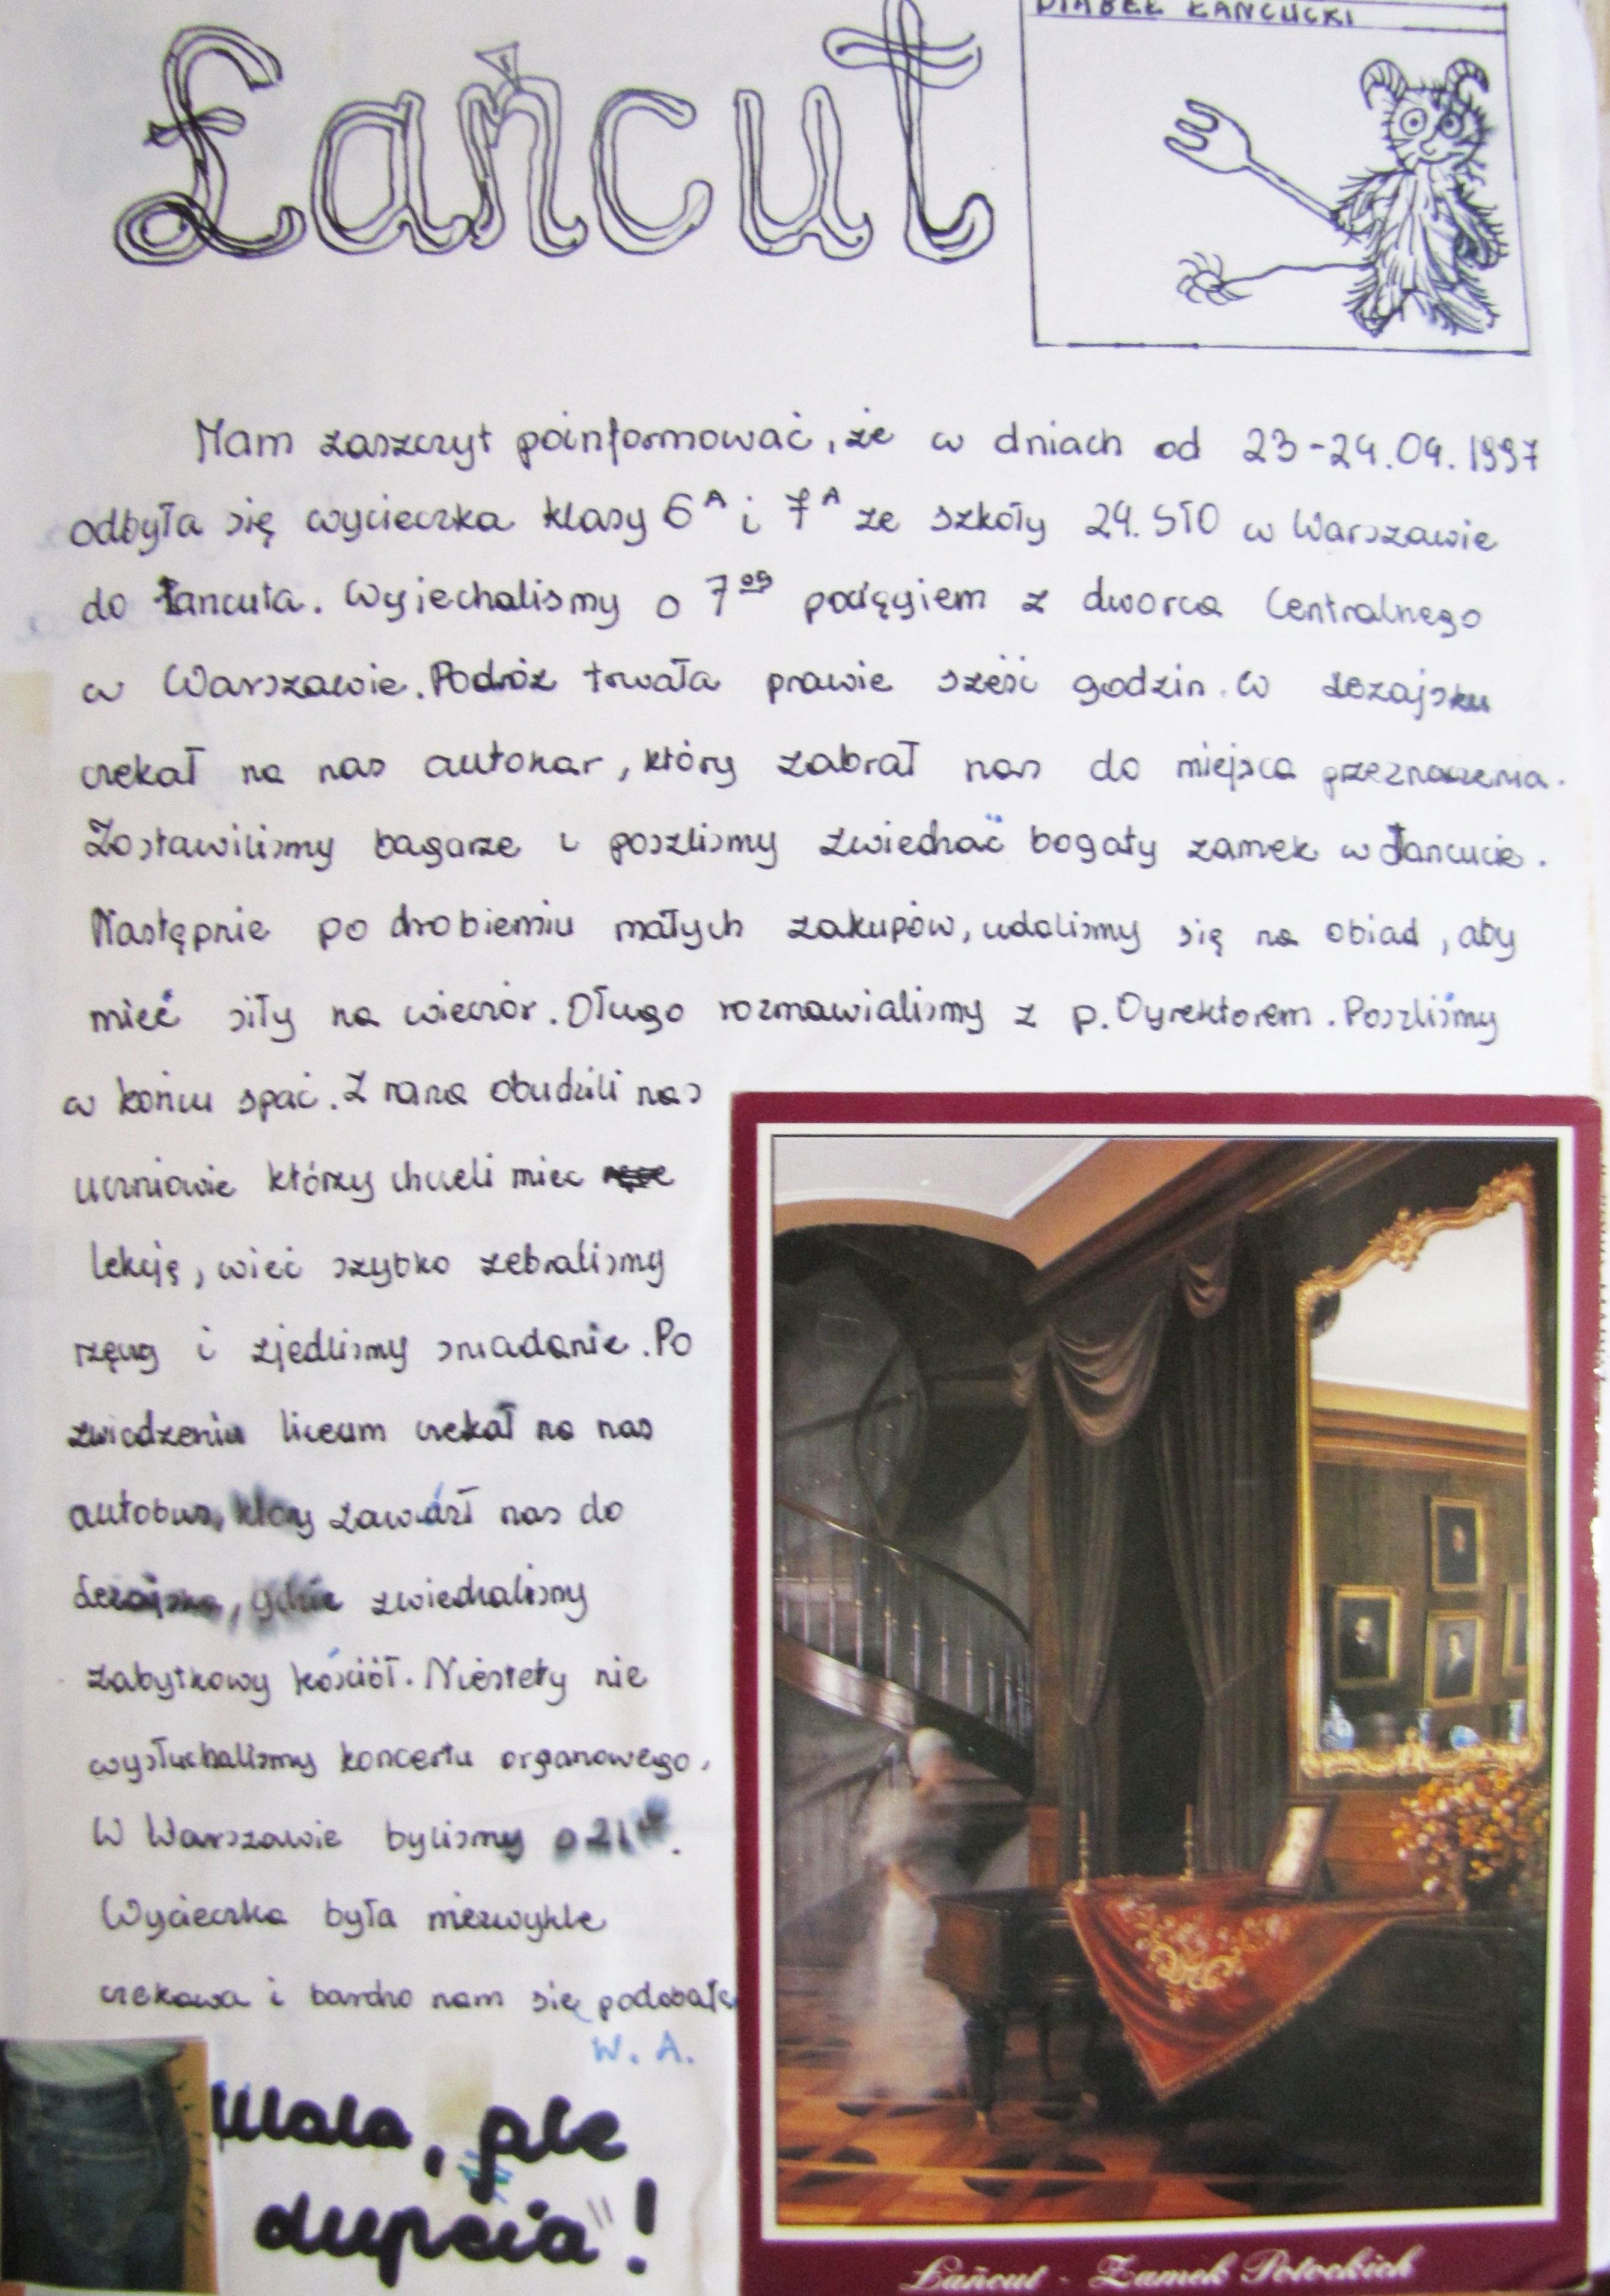 Łańcut
DIABEŁ ŁAŃCUCKI
Mam zaszczyt poinformować, że w dniach od 23-24.04.1997
odbyła się wycieczka klasy 6A i 7A ze szkoły 24. STO w Warszawie
do Łancuta. Wyjechalismy o 7 pociągiem z dworca Centralnego
w Warszawie. Podróż trwała prawie sześć godzin. W Leżajsku
czekał na nas autokar, który zabrał nas do miejsca przeznaczenia.
Zostawilismy bagarze i poszlismy zwiedzać bogaty zamek w Łancucie.
Następnie po zrobieniu małych zakupów, udalismy się na obiad, aby
mieć siły na wieczór. Długo rozmawialismy z p. Dyrektorem. Poszliśmy
w końcu spać. Z rana obudzili nas
uczniowie którzy chcieli miec
lekcję, wieć szybko zebralismy
rzeczy i zjedlismy sniadanie. Po
zwiedzeniu liceum czekał na nas
autobus, który zawiózł nas do
Leżajska, gdzie zwiedzalismy
zabytkowy kościół. Niestety nie
wysłuchalismy koncertu organowego.
W Warszawie bylismy o 21.
Wycieczka była niezwykle
ciekawa i bardzo nam się podobała
W. A.
Mała, ale
dupcia"!
Łańcut - Zamek Potockich